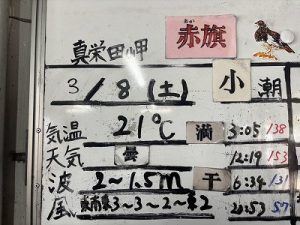 あか
赤旗
真栄田岬
3/8(土) 小 潮
気温 21℃ 満 3:05 138
天気 曇 12:19 153
波 2〜1.5m 干 6:34 131
風 南東3〜3〜2〜東2 20:53 57